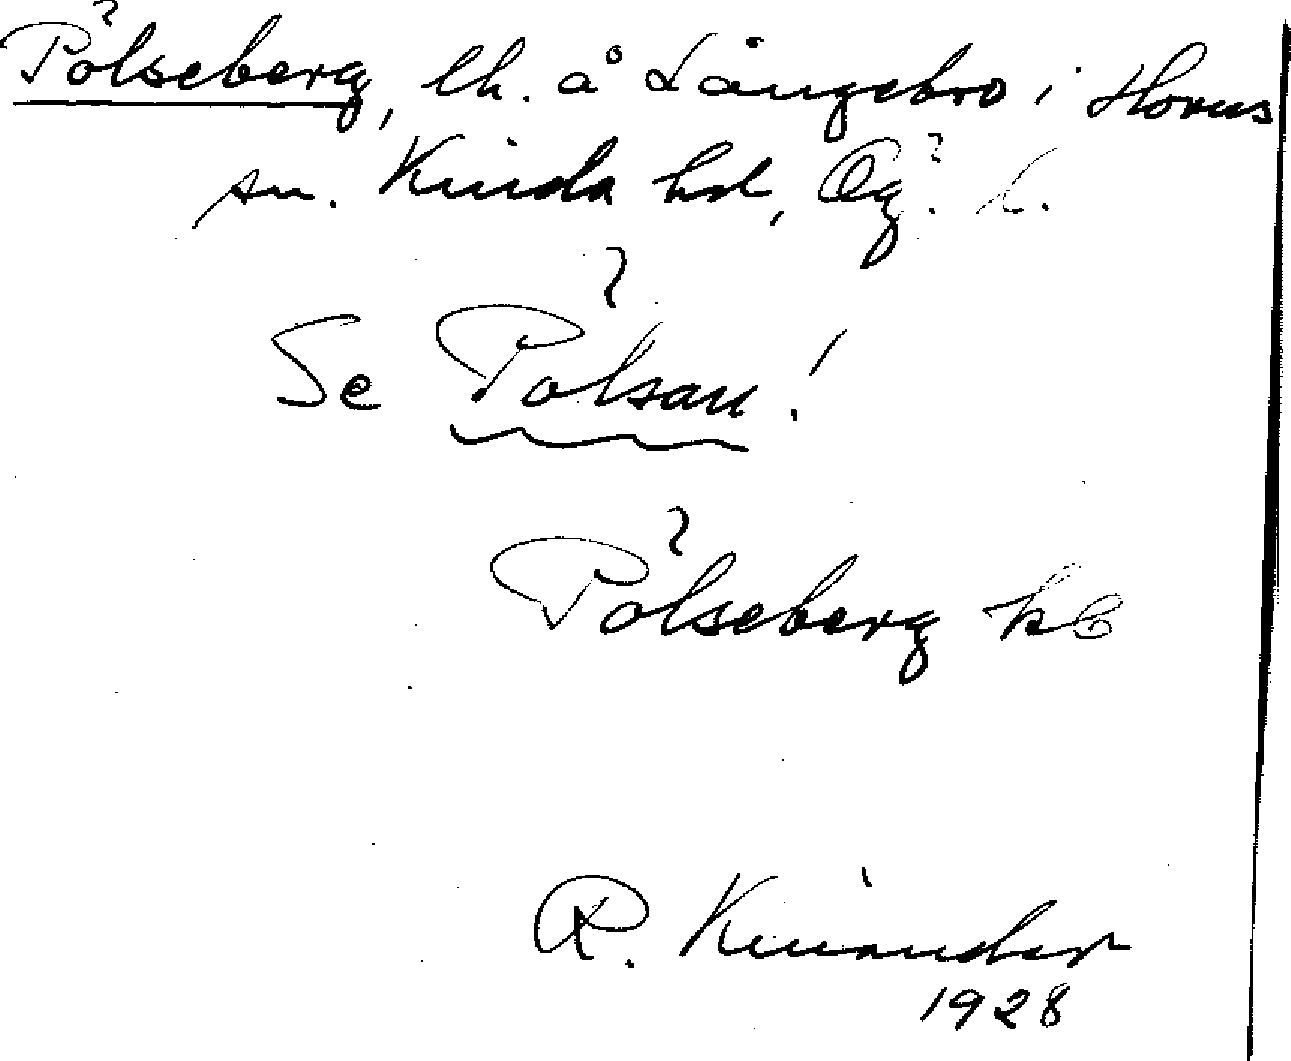 Pölseberg, lh. å Långebro i Horns
sn. Kinda hd, Ög. l.
Se Pölsan!
Pölseberg kb
R. Kinander
1928